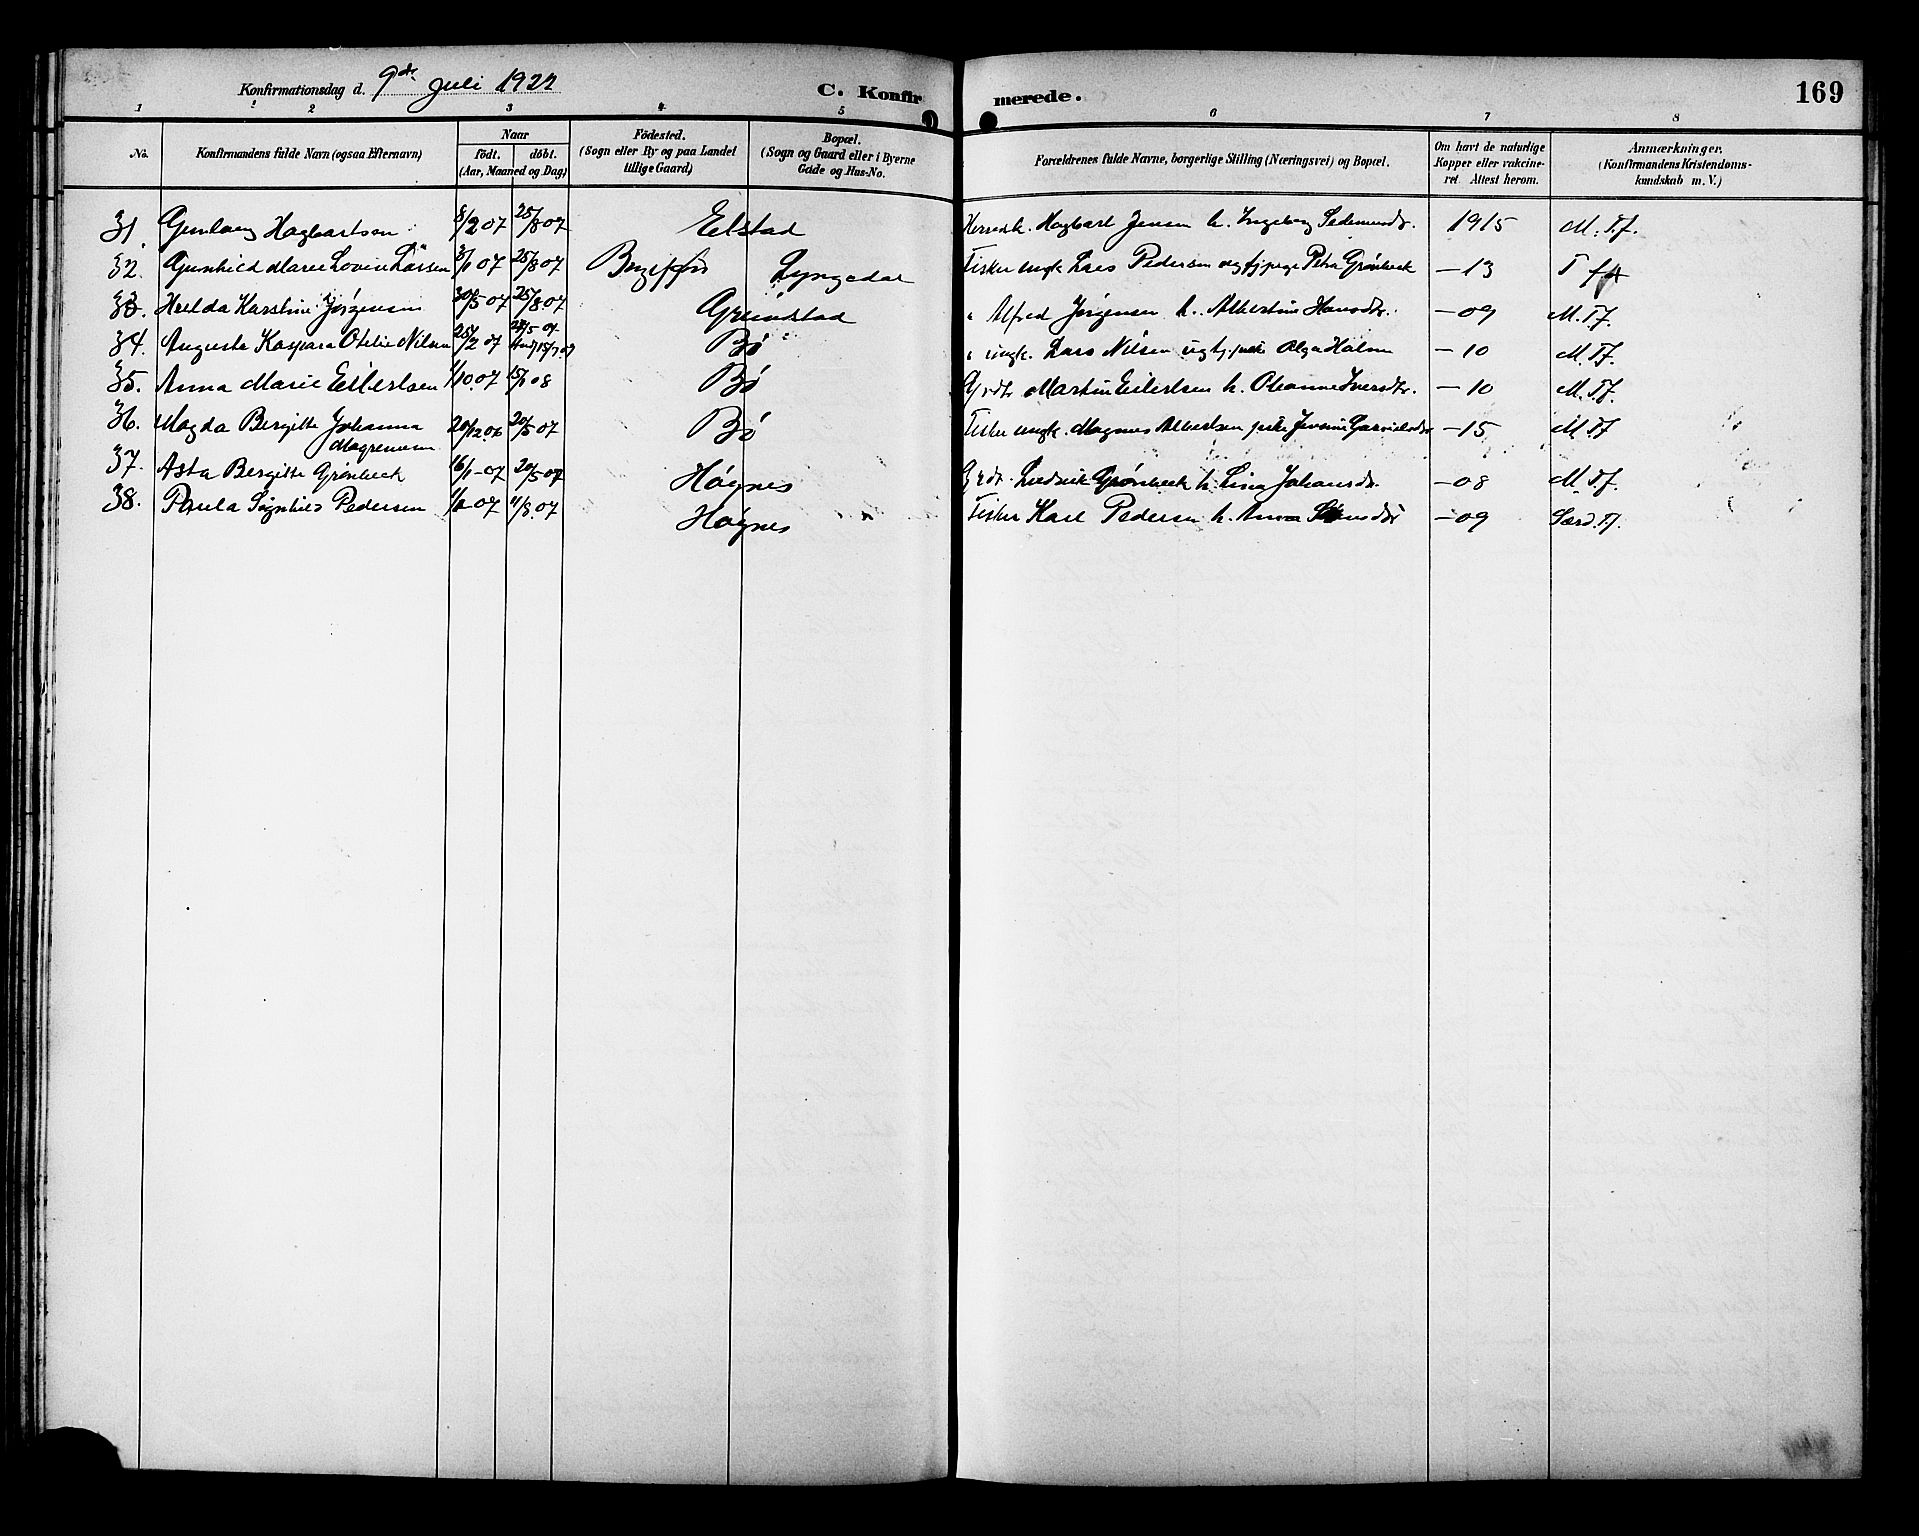 Konfirmationsdag d. 9de Juli 1922
C. Konfirmerede.
169
1 2 3 4 5 6 7 8
No.
Konfirmandens fulde Navn (ogsaa Efternavn)
Naar
födt. döbt.
(Aar, Maaned og Dag)
Födested.
(Sogn eller By og paa Landet
tillige Gaard)
Bopæl.
(Sogn og Gaard eller i Byerne
Gade og Hus-No.
Forældrenes fulde Navne, borgerlige Stilling (Næringsvei) og Bopæl.
Om havt de naturlige
Kopper eller vakcine-
ret. Attest herom.
Anmærkninger.
(Konfirmandens Kristendoms-
kundskab m. V.)
31. Gunlaug Hagbartsen 8/2 07 25/8 07 Eilstad Hagbart Jensen h. Ingeborg 1915 M.T.f.
32. Gunhild Marie Lovise Larsen 3/1 07 25/8 07 Lyngedal Fisker ungk. Lars Pedersen og pige Petra Grønbeck - 13 T
33. Hulda Karstine Jørgensen 30/5 07 25/8 07 Grundstad " Alfred Jørgensen h. Albertine Hansdtr. - 09 M.T.f.
34. Augusta Kaspara Otelie Nilsen 25/2 07 Bø " ungk. Lars Nilsen og Olga Holm - 10 M.T.f.
35. Anna Marie Eilertsen 1/10 07 15/1 08 Bø Grdr Martin Eilertsen h. Oleanne Iversdtr. - 10 M.T.f.
36. Magda Bergitte Johanna 20/12 06 20/5 07 Bø Fisker ungk. Magnus Albertsen pike Jensine - 15 M.T.f
Magnussen
37. Asta Bergitte Grønbeck 16/1 07 20/5 07 Høynes Grdr. Ludvik Grønbeck h. Lina Johansdr. - 08 M.T.f.
38. Paula Signhild Pedersen 07 11/8 07 Høynes Fisker Karl Pedersen h. Anna - 09 Særd. T.f.